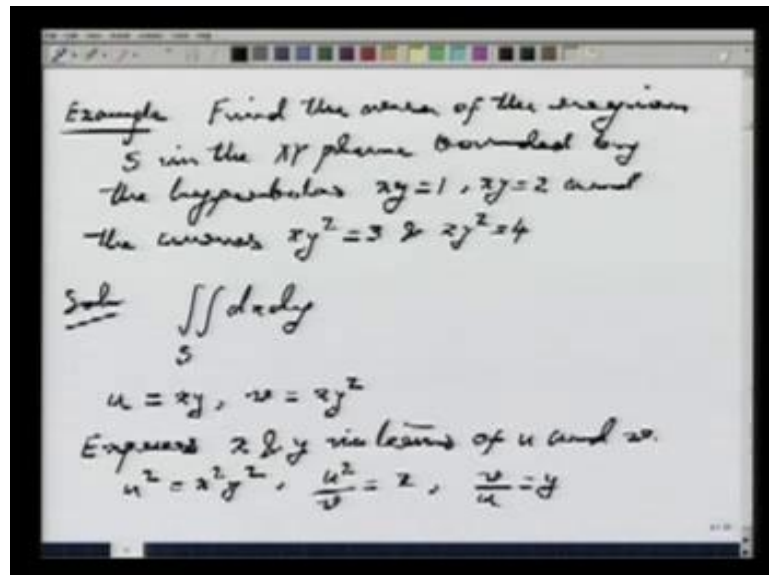 Example Find the area of the region
S in the XY plane bounded by
the hyperbolas xy = 1, xy = 2 and
the curves xy² = 3 & xy² = 4
Soln ∬ dxdy
S
u = xy, v = xy²
Express x & y in terms of u and v.
u² = x²y², u²/v = x, v/u = y